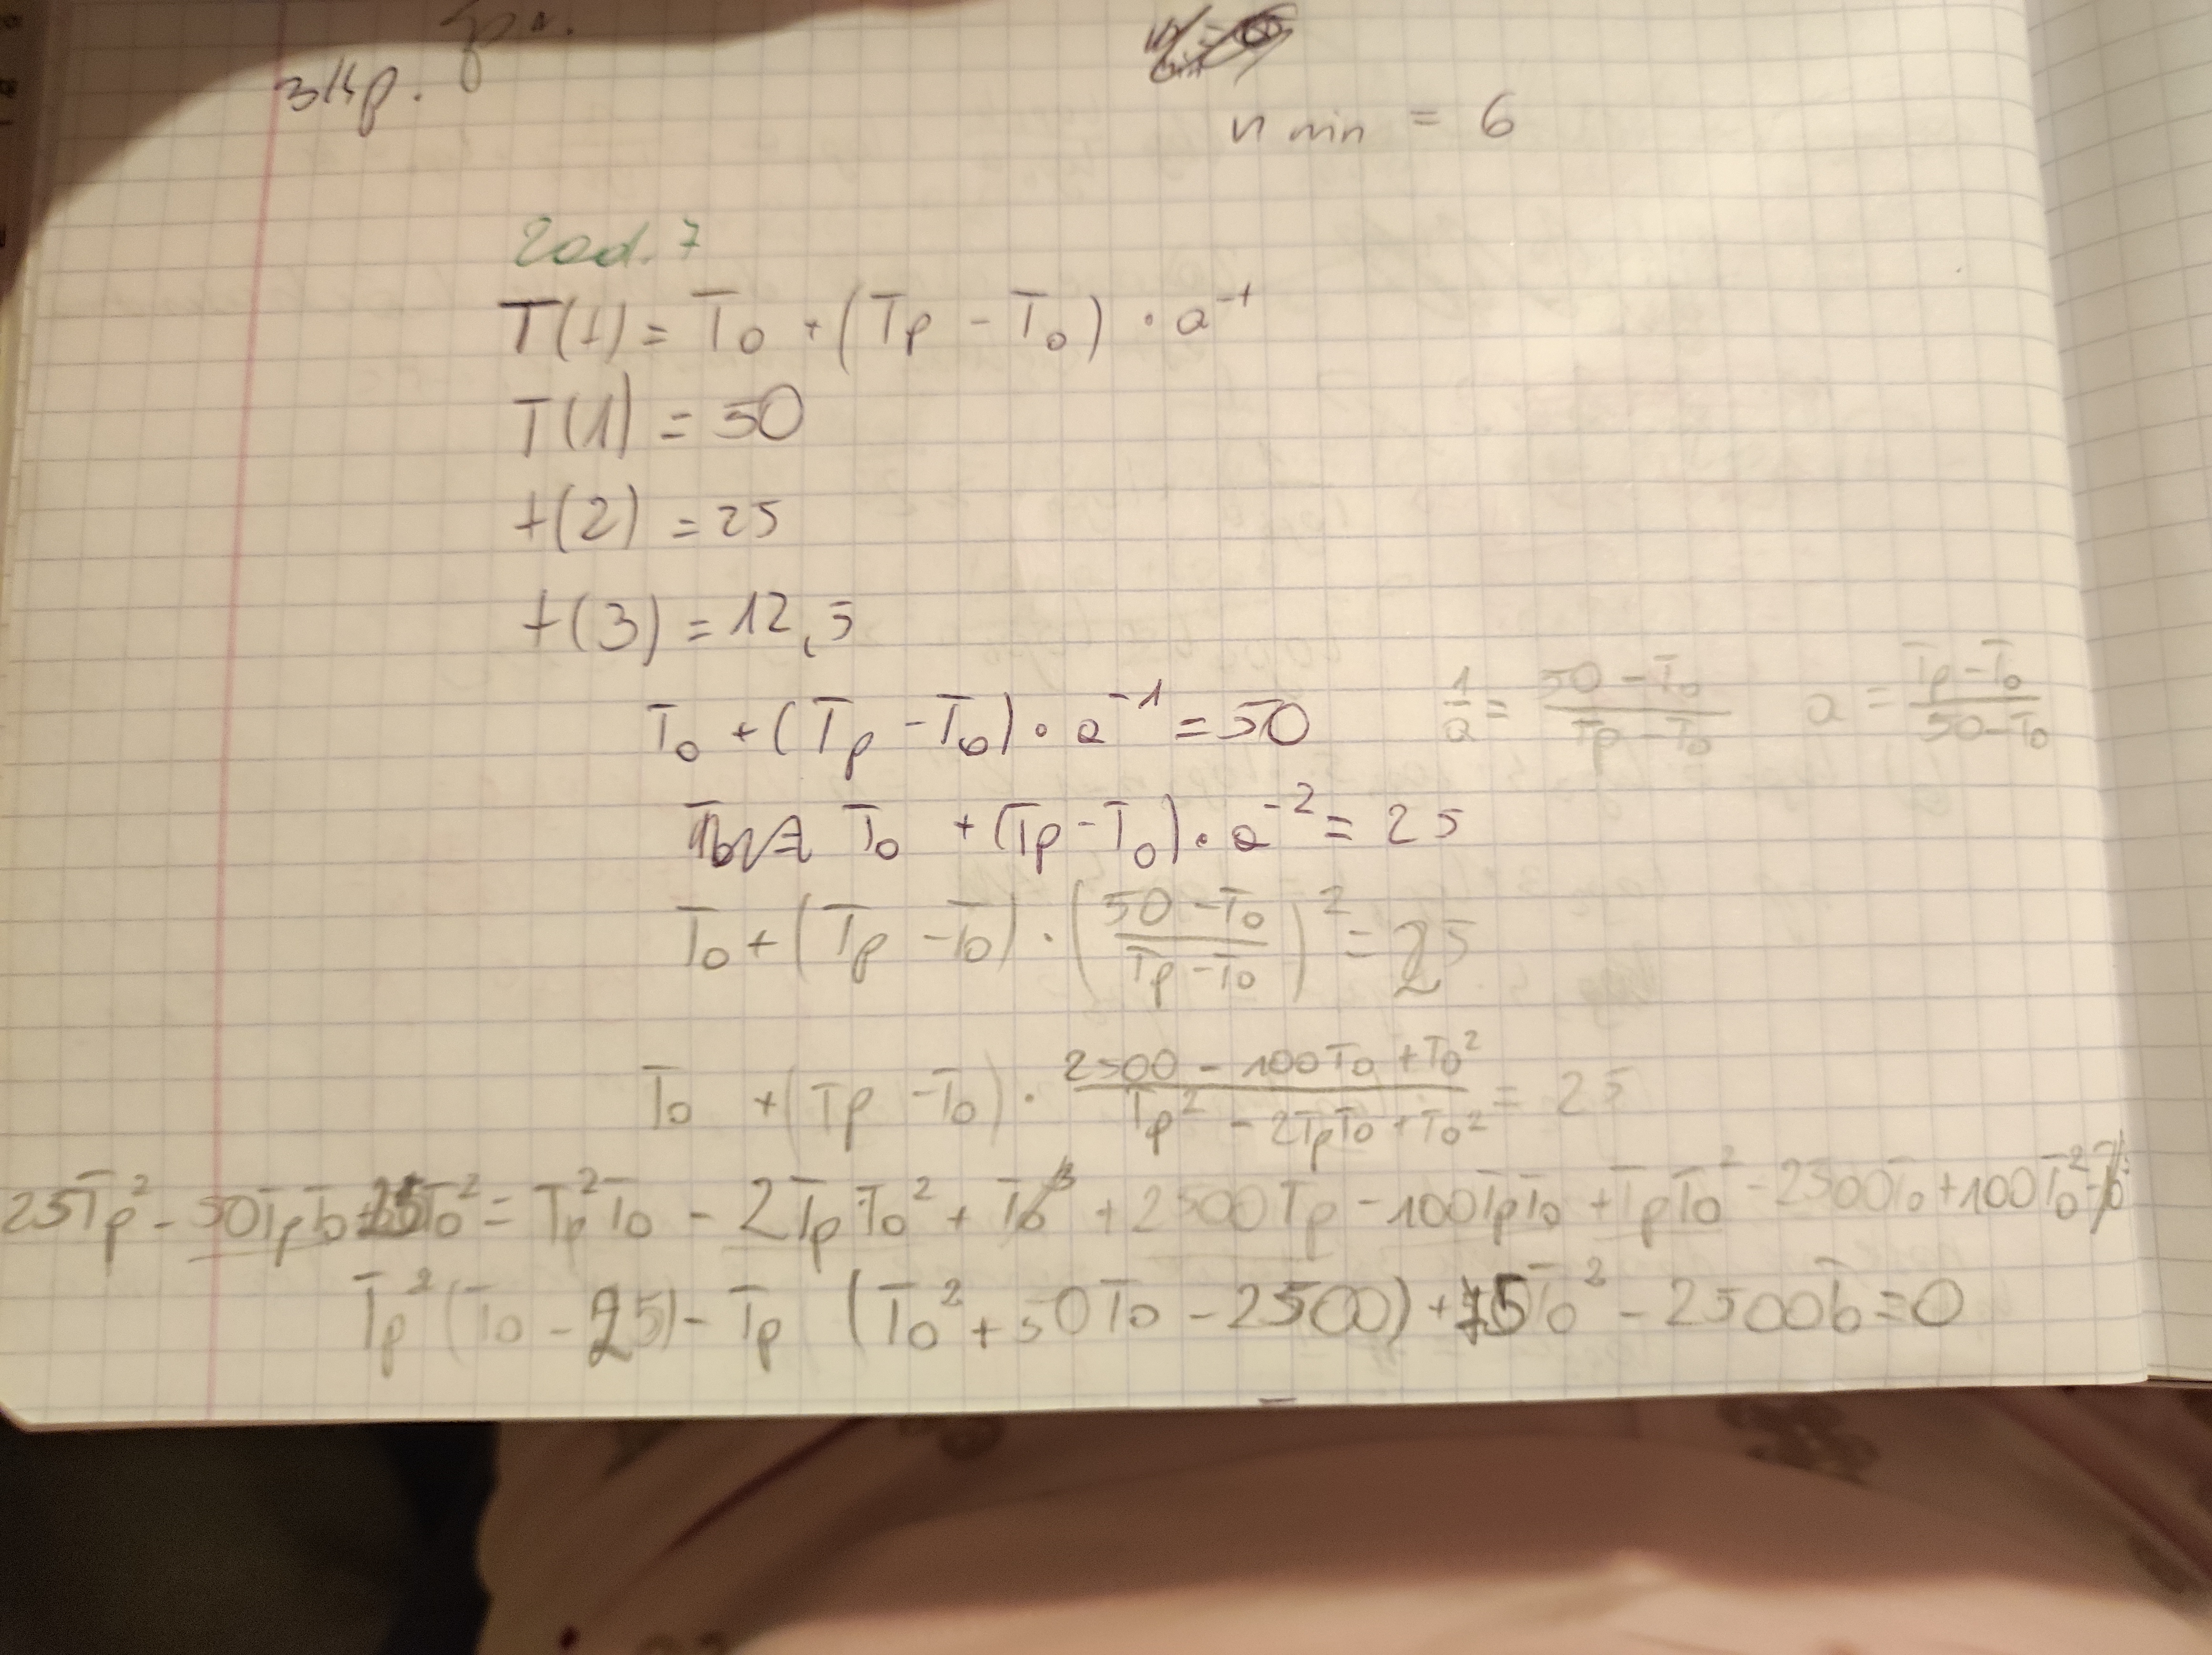 n min = 6
Zad. 7
T(t) = T₀ + (Tp - T₀) · a⁻ᵗ
T(1) = 50
t(2) = 25
t(3) = 12,5
T₀ + (Tp - T₀) · a⁻¹ = 50    1/a = (50 - T₀)/(Tp - T₀)    a = (Tp - T₀)/(50 - T₀)
T₀ + (Tp - T₀) · a⁻² = 25
T₀ + (Tp - T₀) · ((50 - T₀)/(Tp - T₀))² = 25
T₀ + (Tp - T₀) · (2500 - 100T₀ + T₀²)/(Tp² - 2TpT₀ + T₀²) = 25
25Tp² - 50TpT₀ + 25T₀² = Tp²T₀ - 2TpT₀² + T₀³ + 2500Tp - 100TpT₀ + TpT₀² - 2500T₀ + 100T₀² - T₀³
Tp²(T₀ - 25) - Tp (T₀² + 50T₀ - 2500) + 75T₀² - 2500T₀ = 0